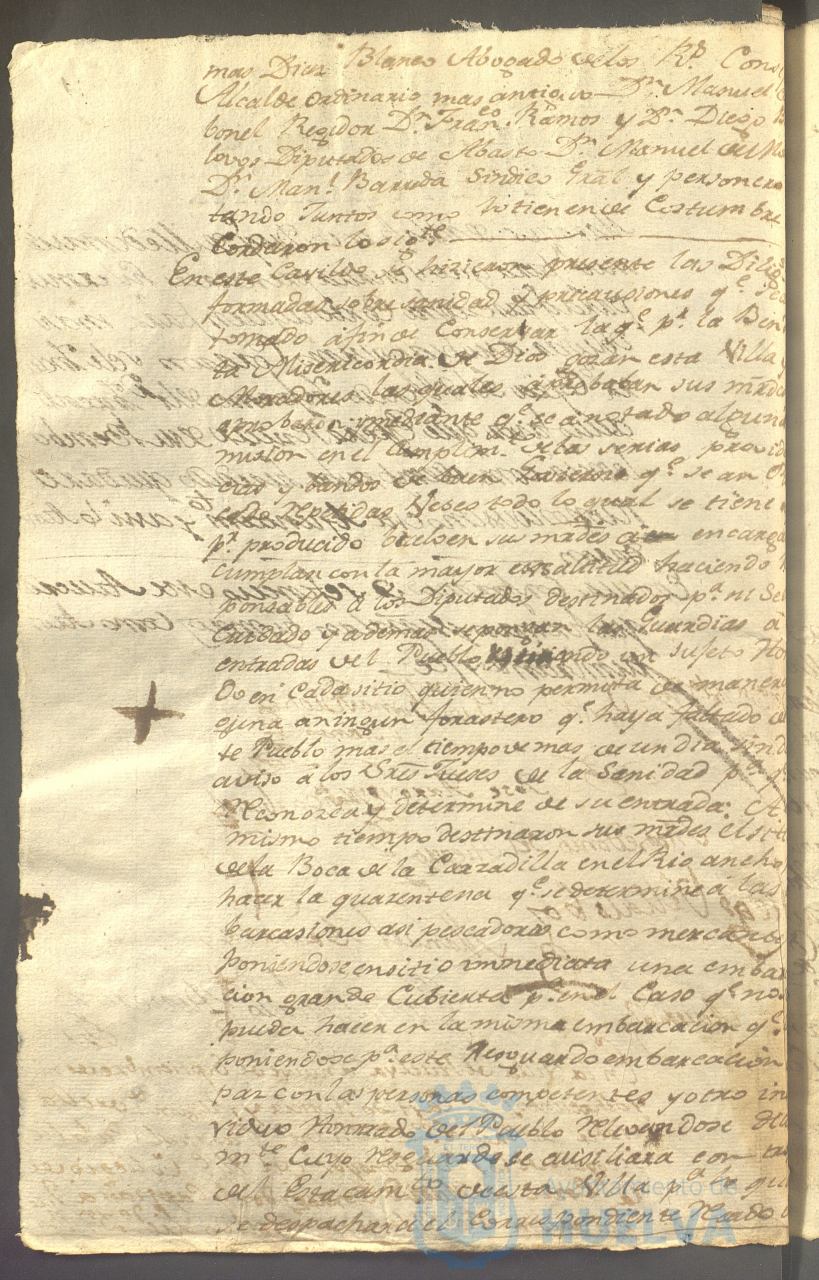 mas Diaz Blanco Abogado de los R.s Cons
Alcalde ordinario mas antiguo D.n Manuel
bonel Regidor D.n Fran.co Ramos y D.n Diego
Diputados de Abasto D.n Manuel de
D.n Man.l Barreda Sindico Gral y personero
tando Juntos como lo tienen de Costumbre
Cordaron lo sig.te
En este Cavildo se hizieron presente las Dilig
formadas sobre sanidad y precausiones q.e se
tomado afin de Conservar la q.e p.r la Ben
ta Misericordia de Dios gozan esta Villa y
Moradores las quales aprobaban sus mrds
aprobaron mediante q.e se a notado alguna
mision en el Cumplim.to de las serias provid
cias y bandos de buen Govierno q.e se an
repetidas Veses todo lo qual se tiene
p.r producido buelven sus mrdes a encarga
cumplan con la mayor exsaltitud haciendo
ponsables a los Diputados destinados p.a
Cuidado y ademas se pongan las Guardias a
entradas del Pueblo un sujeto Ho
do en Cada sitio quien no permita de maner
guna a ningun forastero q.e haya faltado de
te Pueblo mas el tiempo de mas de un dia sin d
aviso a los Sres Jueses de la Sanidad p.a q.e
Reconozca y determine de su entrada: A
mismo tiempo destinaron sus mrdes el siti
de la Boca de la Cazadilla en el Rio ancho
hacer la quarentena q.e se determine a las
barcasiones asi pescadoras como mercante
poniendose en sitio immediata una embar
cion grande Cubierta p.a en el Caso q.e no s
pueda hacer en la misma embarcacion q.e
poniendose p.a este Resguardo embarcacion
par con las personas competentes y otro in
viduo Honrrado del Pueblo Relevandose
m.te Cuyo Resguardo se ausiliara con
del Estacam.to de esta Villa p.a lo qu
se despachara el Correspondiente Recado
Ayuntamiento de
HUELVA